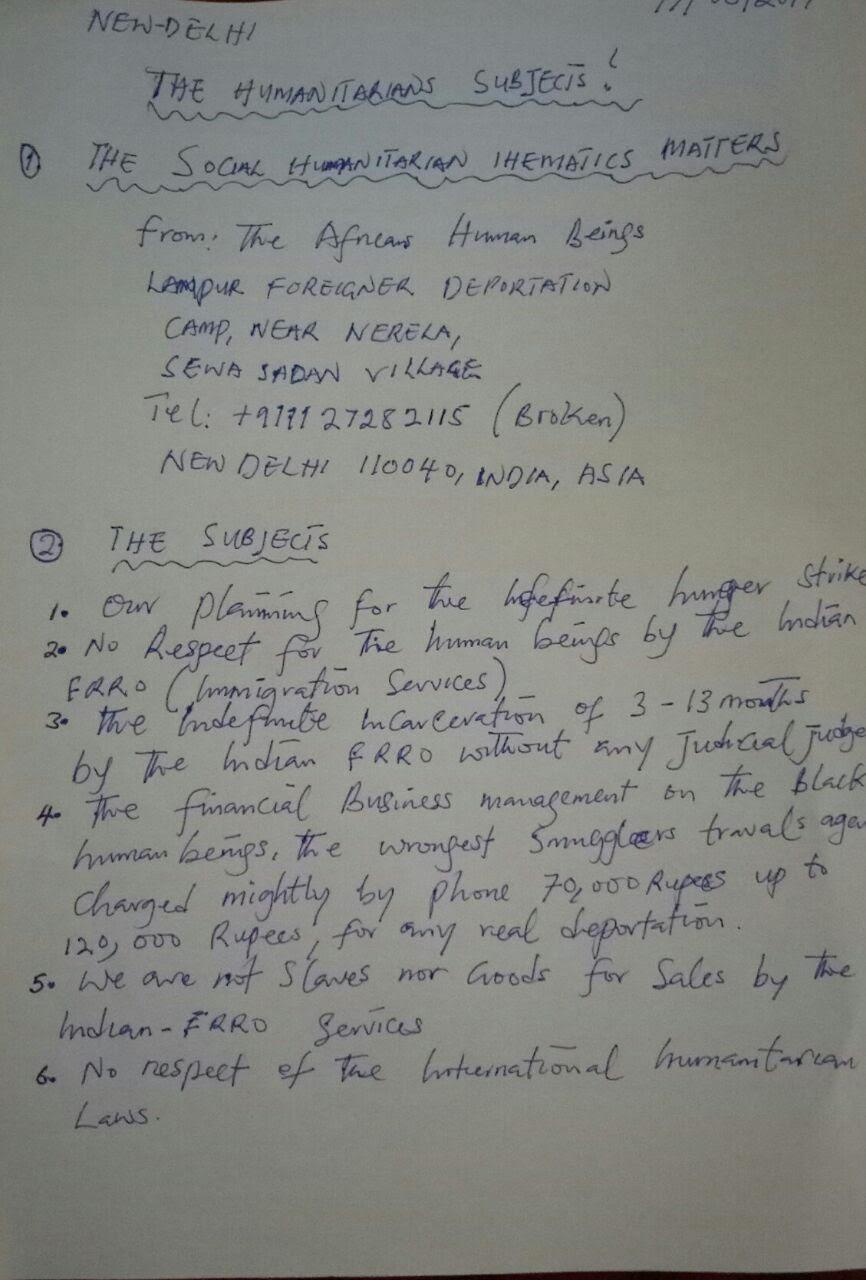 NEW-DELHI
THE HUMANITARIANS SUBJECTS!
① THE SOCIAL HUMANITARIAN THEMATICS MATTERS
from: The African Human Beings
LAMPUR FOREIGNER DEPORTATION
CAMP, NEAR NERELA,
SEWA SADAN VILLAGE
Tel: +9111 27282115 (Broken)
NEW DELHI 110040, INDIA, ASIA
② THE SUBJECTS
1. Our planning for the Indefinite hunger strike
2. No Respect for The human beings by the Indian
FRRO (Immigration Services)
3. The Indefinite Incarceration of 3-13 months
by the Indian FRRO without any Judicial judge
4. The financial Business management on the Black
human beings, the wrongest Smugglers travals agen
Charged mightly by phone 70,000 Rupees up to
120,000 Rupees, for any real deportation.
5. We are not Slaves nor Goods for Sales by the
Indian-FRRO Services
6. No respect of the International humanitarian
Laws.